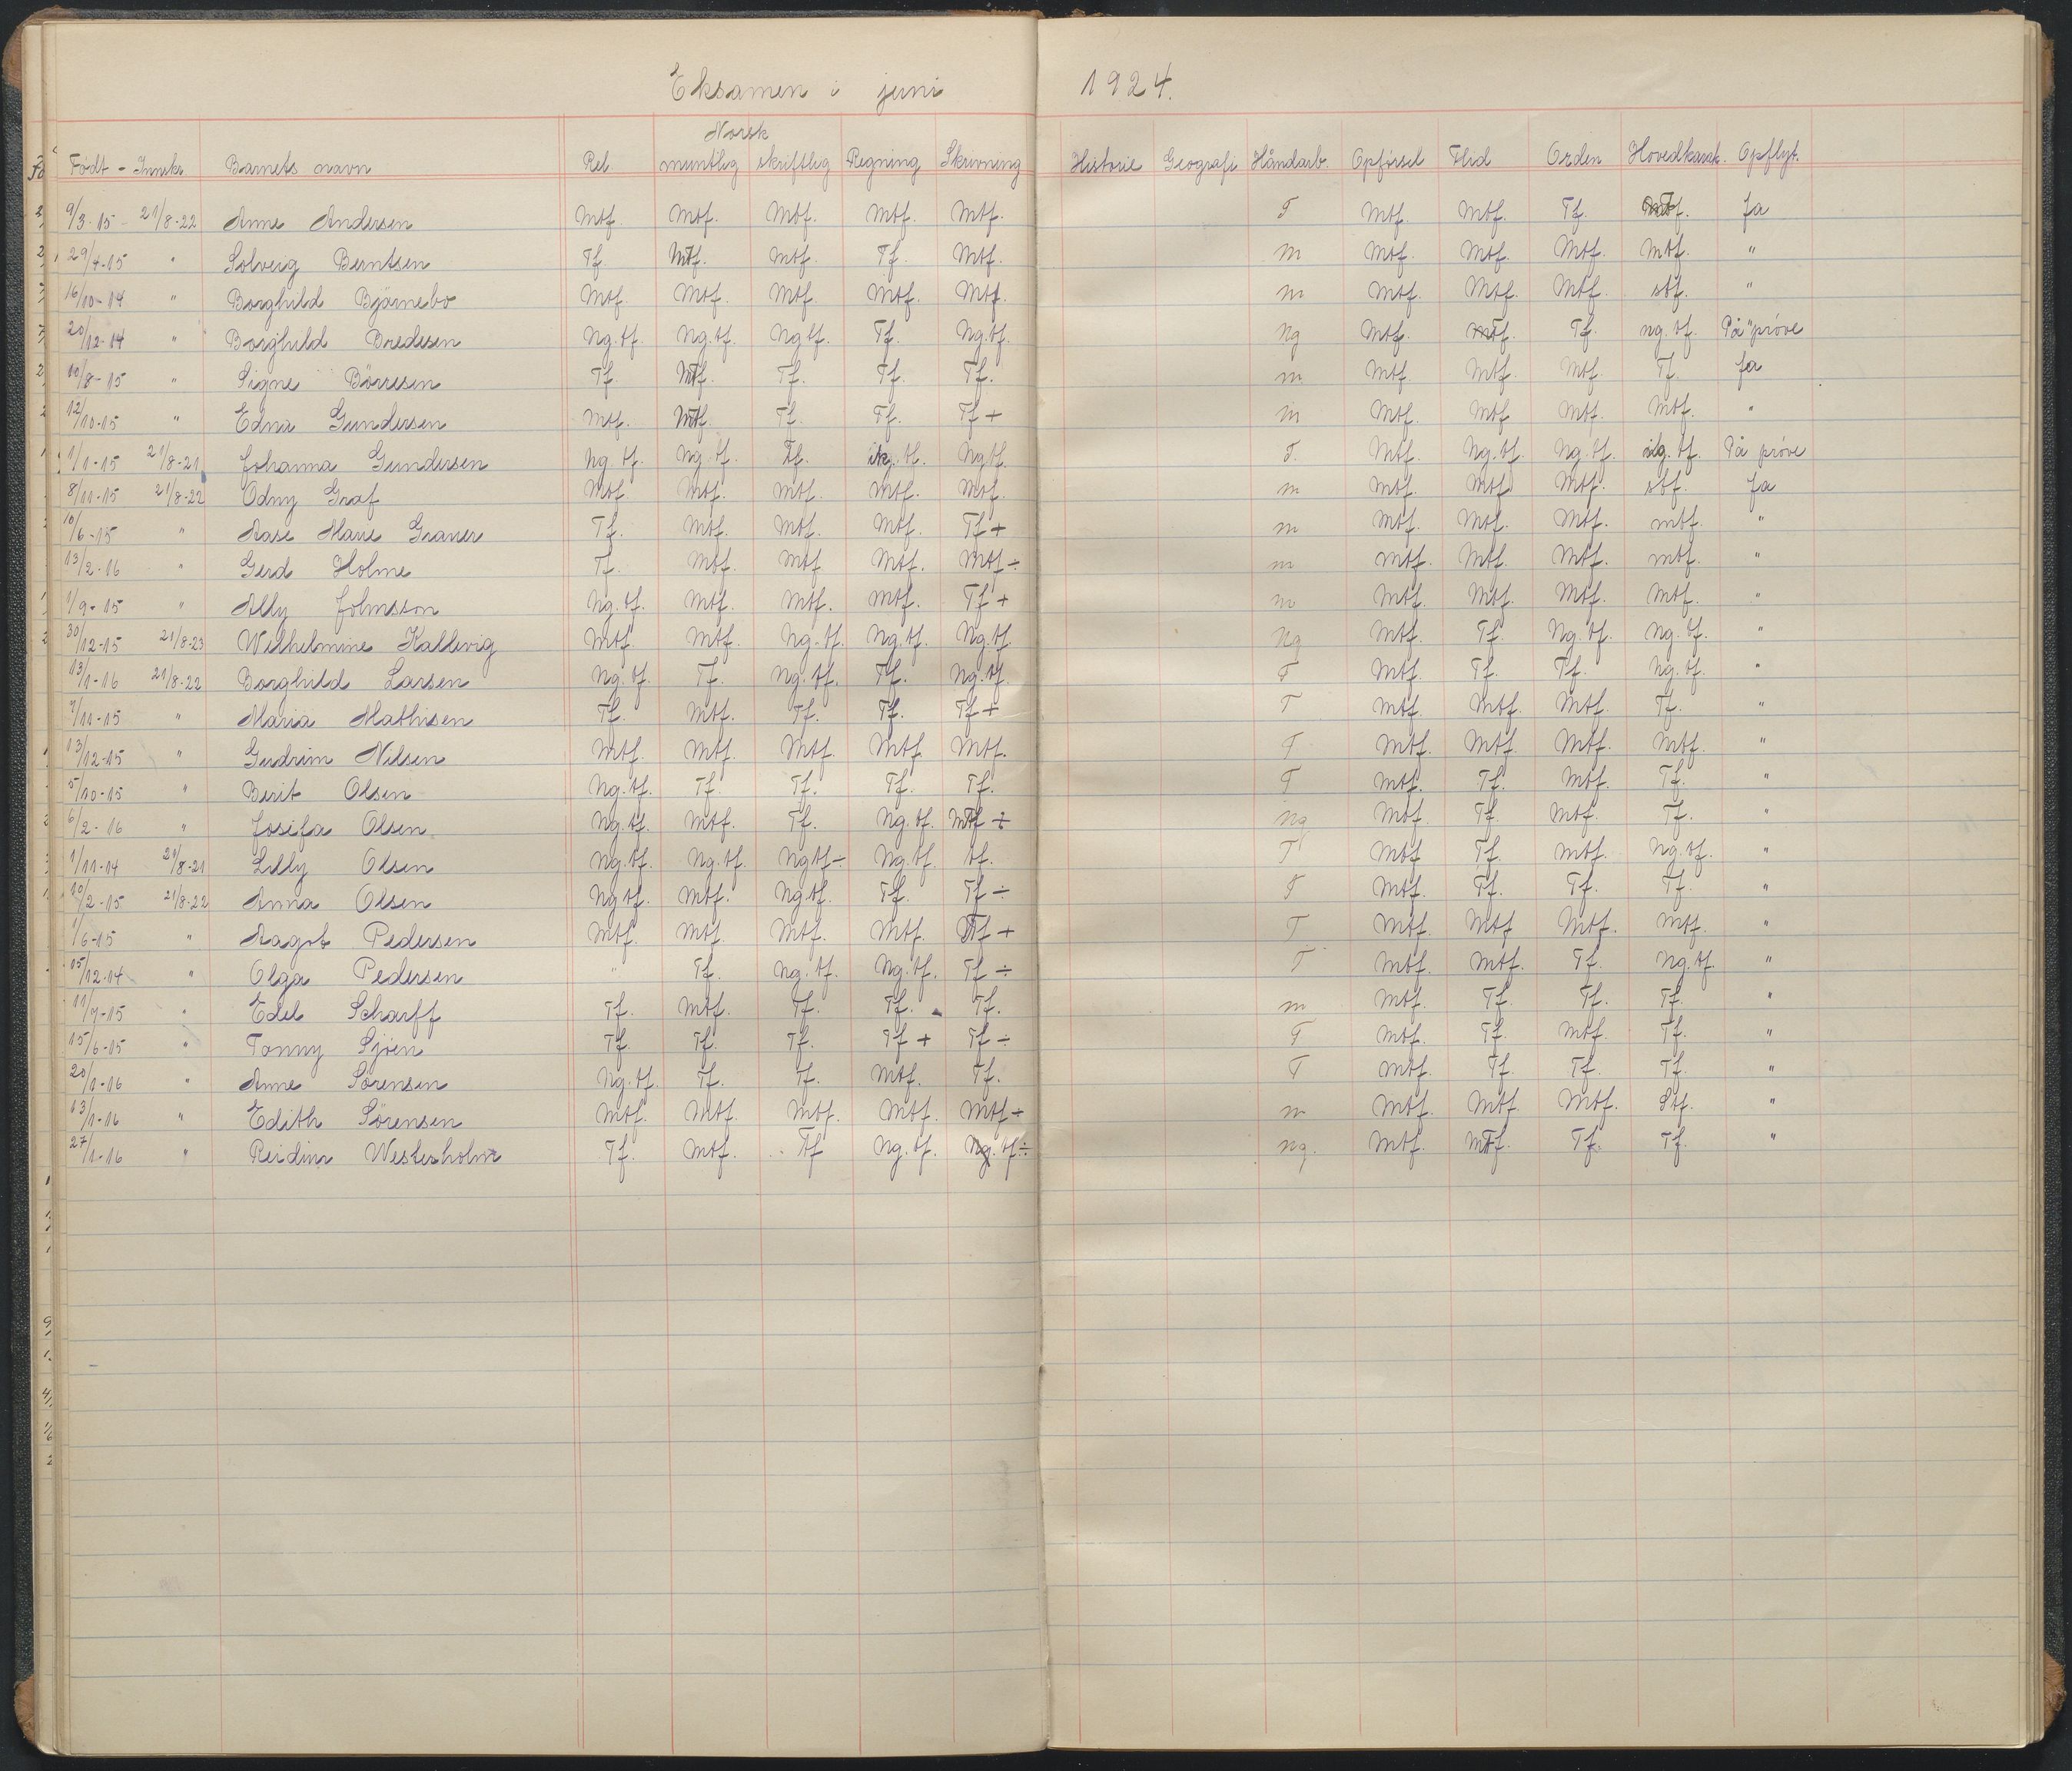 Eksamen i juni 1924.
Norsk
Født - Innskr. Barnets navn Rel. muntlig skriftlig Regning Skrivning Historie Geografi Håndarb. Opførsel Flid Orden Hovedkarakt. Opflyt.
9/3-15 - 21/8-22 Anne Andersen Mtf Mtf. Mtf. Mtf. Mtf. T Mtf Mtf. Tf. Ja
29/4-15 " Solveig Berntsen Tf Mtf. Mtf. Tf. Mtf. m Mtf. Mtf. Mtf. Mtf. "
16/10-14 " Borghild Bjørnebo Mtf. Mtf. Mtf. Mtf. Mtf. m Mtf. Mtf. Mtf. stf. "
20/12-14 " Borghild Bredesen Ng.tf. Ng.tf. Ng.tf. Tf. Ng.tf. Ng Mtf. Mtf. Tf. ng.tf. På prøve
10/8-15 " Signe Børresen Tf. Mtf. Tf. Tf. Tf. m Mtf. Mtf. Mtf. Tf. Ja
12/10-15 " Edna Gundersen Mtf. Mtf. Tf. Tf. Tf + m Mtf. Mtf. Mtf. Mtf. "
1/1-15 21/8-21 Johanna Gundersen Ng.tf. Ng.tf. Tf. ik.tf. Ng.tf. T. Mtf. Ng.tf. Ng.tf. ng.tf. På prøve
8/11-15 21/8-22 Odny Graf Mtf Mtf. Mtf. Mtf. Mtf. m Mtf. Mtf. Mtf. stf. Ja
10/6-15 " Aase Marie Graver Tf. Mtf. Mtf. Mtf. Tf + m Mtf. Mtf. Mtf. mtf. "
13/2-16 " Gerd Holme Tf. Mtf. Mtf Mtf. Mtf ÷ m Mtf. Mtf. Mtf. mtf. "
1/9-15 " Ally Johnsson Ng.tf. Mtf. Mtf. Mtf. Tf + m Mtf. Mtf. Mtf. Mtf. "
30/12-15 21/8-23 Wilhelmine Kallevig Mtf. Mtf. Ng.tf. Ng.tf. Ng.tf. Ng Mtf. Tf. Ng.tf. Ng.tf. "
13/1-16 21/8-22 Borghild Larsen Ng.tf. Tf. Ng.tf. Tf. Ng.tf. T Mtf. Tf. Tf. Ng.tf. "
7/11-15 " Maria Mathisen Tf. Mtf. Tf. Tf. Tf + T Mtf. Mtf. Mtf. Tf. "
13/12-15 " Gudrun Nilsen Mtf. Mtf. Mtf. Mtf. Mtf. T Mtf. Mtf. Mtf. Mtf. "
5/10-15 " Berit Olsen Ng.tf. Tf. Tf. Tf. Tf. T Mtf. Tf. Mtf. Tf. "
6/2-16 " Josefa Olsen Ng.tf. Mtf. Tf. Ng.tf. Mtf ÷ Ng Mtf. Tf. Mtf. Tf. "
1/11-14 21/8-21 Lilly Olsen Ng.tf. Ng.tf. Ng.tf ÷ Ng.tf. tf. T Mtf Tf. Mtf. Ng.tf. "
10/2-15 21/8-22 Anna Olsen Ng.tf. Mtf. Ng.tf. Tf. Tf ÷ T Mtf. Tf. Tf. Tf. "
1/6-15 " Aagot Pedersen Mtf. Mtf. Mtf. Mtf. Tf + T Mtf. Mtf Mtf. Mtf. "
15/12-14 " Olga Pedersen " Tf. Ng.tf. Ng.tf. Tf ÷ T Mtf. Mtf. Tf. Ng.tf. "
11/7-15 " Edel Scharff Tf. Mtf. Tf. Tf. Tf. m Mtf. Tf. Tf. Tf. "
15/6-15 " Tonny Sjøen Tf Tf. Tf. Tf + Tf ÷ T Mtf. Tf. Mtf. Tf. "
20/1-16 " Anne Sørensen Ng.tf. Tf. Tf. Mtf. Tf. T Mtf. Tf. Tf. Tf. "
13/1-16 " Edith Sørensen Mtf. Mtf. Mtf. Mtf. Mtf ÷ m Mtf. Mtf. Mtf. Stf. "
27/1-16 " Reidun Westerholm Tf. Mtf. Tf Ng.tf. Ng.tf. ÷ ng. Mtf. Mtf. Tf. Tf. "